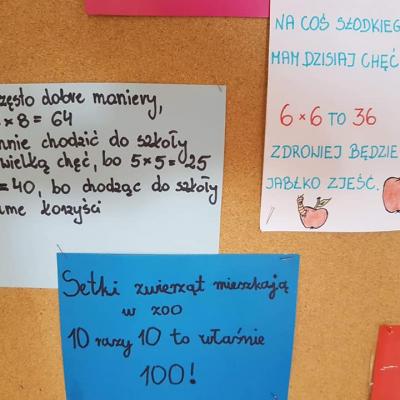 zęsto dobre maniery,
× 8 = 64
nnie chodzić do szkoły
wielką chęć, bo 5×5=25
= 40, bo chodząc do szkoły
ame korzyści
NA COŚ SŁODKIEG
MAM DZISIAJ CHĘĆ
6 × 6 TO 36
ZDROWIEJ BĘDZIE
JABŁKO ZJEŚĆ.
Setki zwierząt mieszkają
w zoo
10 razy 10 to właśnie
100!